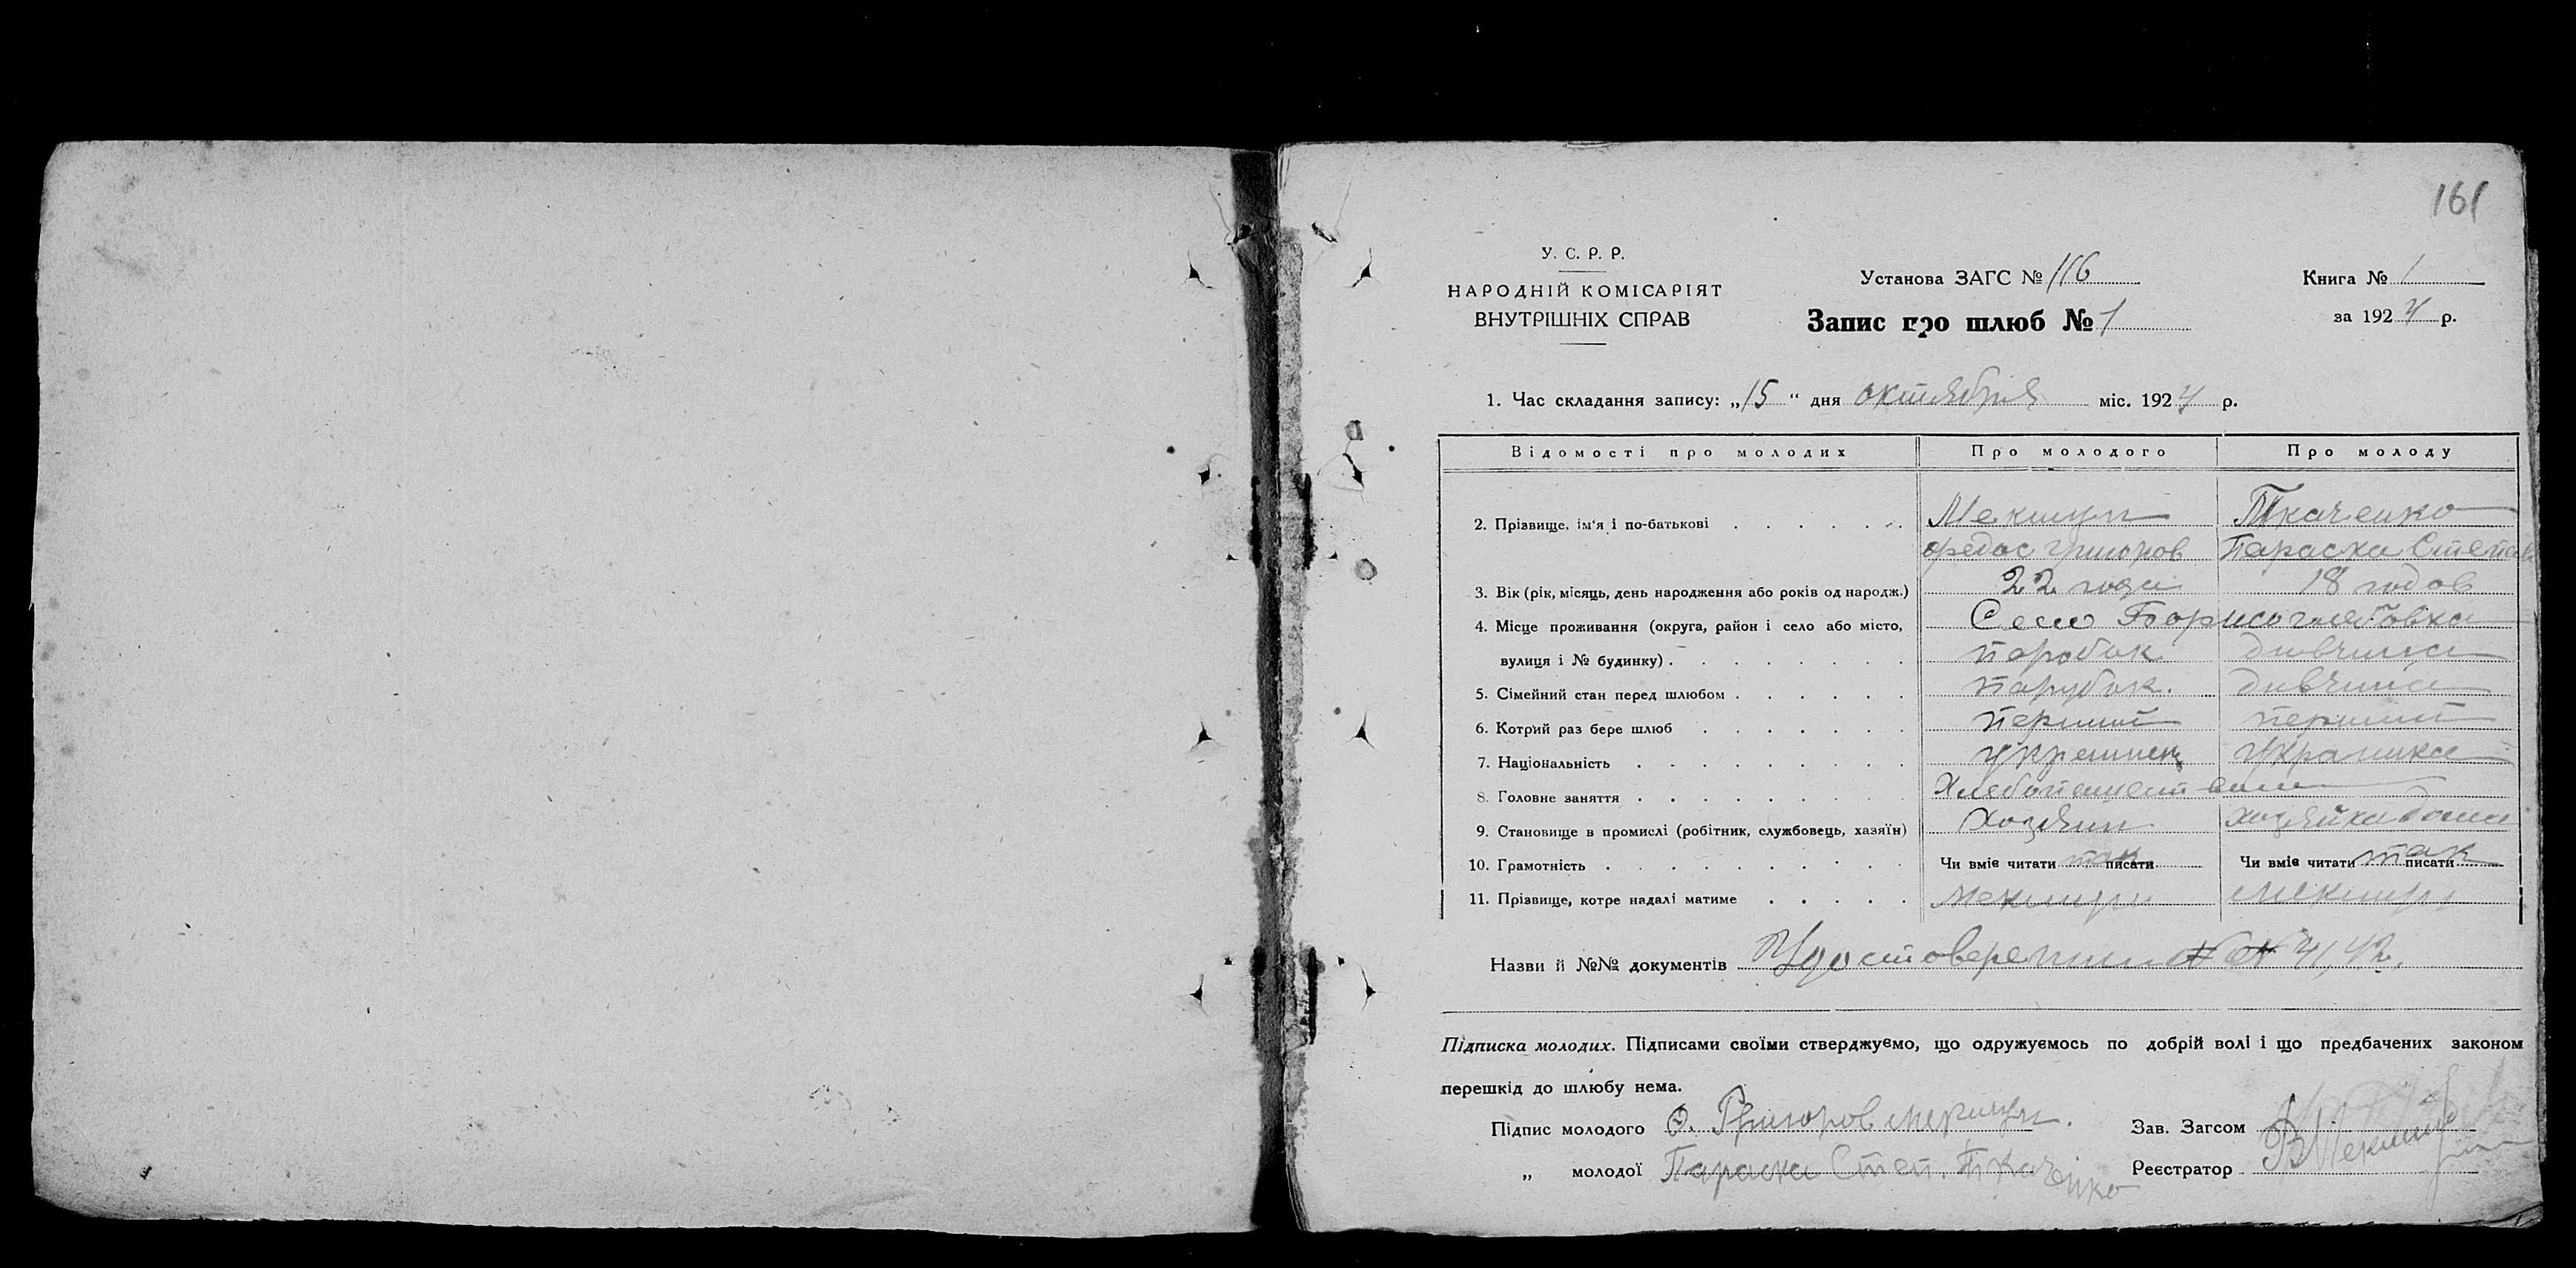 161
У. С. Р. Р.
НАРОДНІЙ КОМІСАРІЯТ
ВНУТРІШНІХ СПРАВ
Установа ЗАГС № 116
Запис про шлюб № 1
Книга № 1
за 1924 р.
1. Час складання запису: „15“ дня октября міс. 1924 р.
Відомості про молодих Про молодого Про молоду
2. Прізвище, ім‘я і по-батькові Мекшун Ткаченко
Федос Григоров Параска Степав
3. Вік (рік, місяць, день народження або років од народж.) 22 года 18 годов
4. Місце проживання (округа, район і село або місто, Село Борисоглебовка
вулиця і № будинку) паробок дивчина
5. Сімейний стан перед шлюбом парубок. дивчина
6. Котрий раз бере шлюб перший перший
7. Національність украинец Украинка
8. Головне заняття Хлебопашество
9. Становище в промислі (робітник, службовець, хазяїн) Хозяин хозяйка дома
10. Грамотність Чи вміє читати так писати Чи вміє читати так писати
11. Прізвище, котре надалі матиме Мекшун Мекшун
Назви й №№ документів Удостоверении № № 41, 42.
Підписка молодих. Підписами своїми стверджуємо, що одружуємось по добрій волі і що предбачених законом
перешкід до шлюбу нема.
Підпис молодого Ф. Григоров Мекшун. Зав. Загсом
„ молодої Параска Степ. Ткаченко Реєстратор В Мекшун